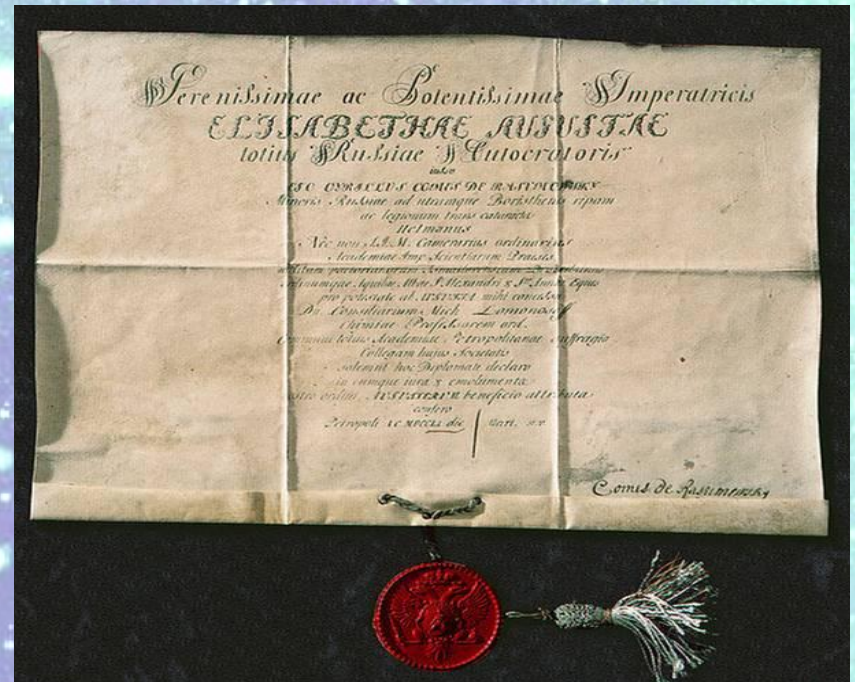 Serenissimae ac Potentissimae Imperatricis
ELISABETHAE AUGUSTAE
totius Russiae Autocratoris
iussu
CYRILLUS COMES DE RASUMOWSKY
Minoris Russiae ad utramque Boristhenis ripam
ac legionum trans cataracta
Hetmanus
Nec non S.I.M. Camerarius ordinarius
Academiae Imp. Scientiarum Praeses
Aquilae Albae S. Alexandri & Stae Annae Eques
pro potestate ab AUGUSTA mihi concessa
Dn. Consiliarium Mich Lomonosoff
Chimiae Professorem ord.
communi totius Academiae Petropolitanae suffragio
Collegam hujus Societatis
solemni hoc Diplomate declaro
in eumque iura & emolumenta
ordini AUGUSTAE beneficio attributa
confero
Petropoli die
Comes de Rasumowsky